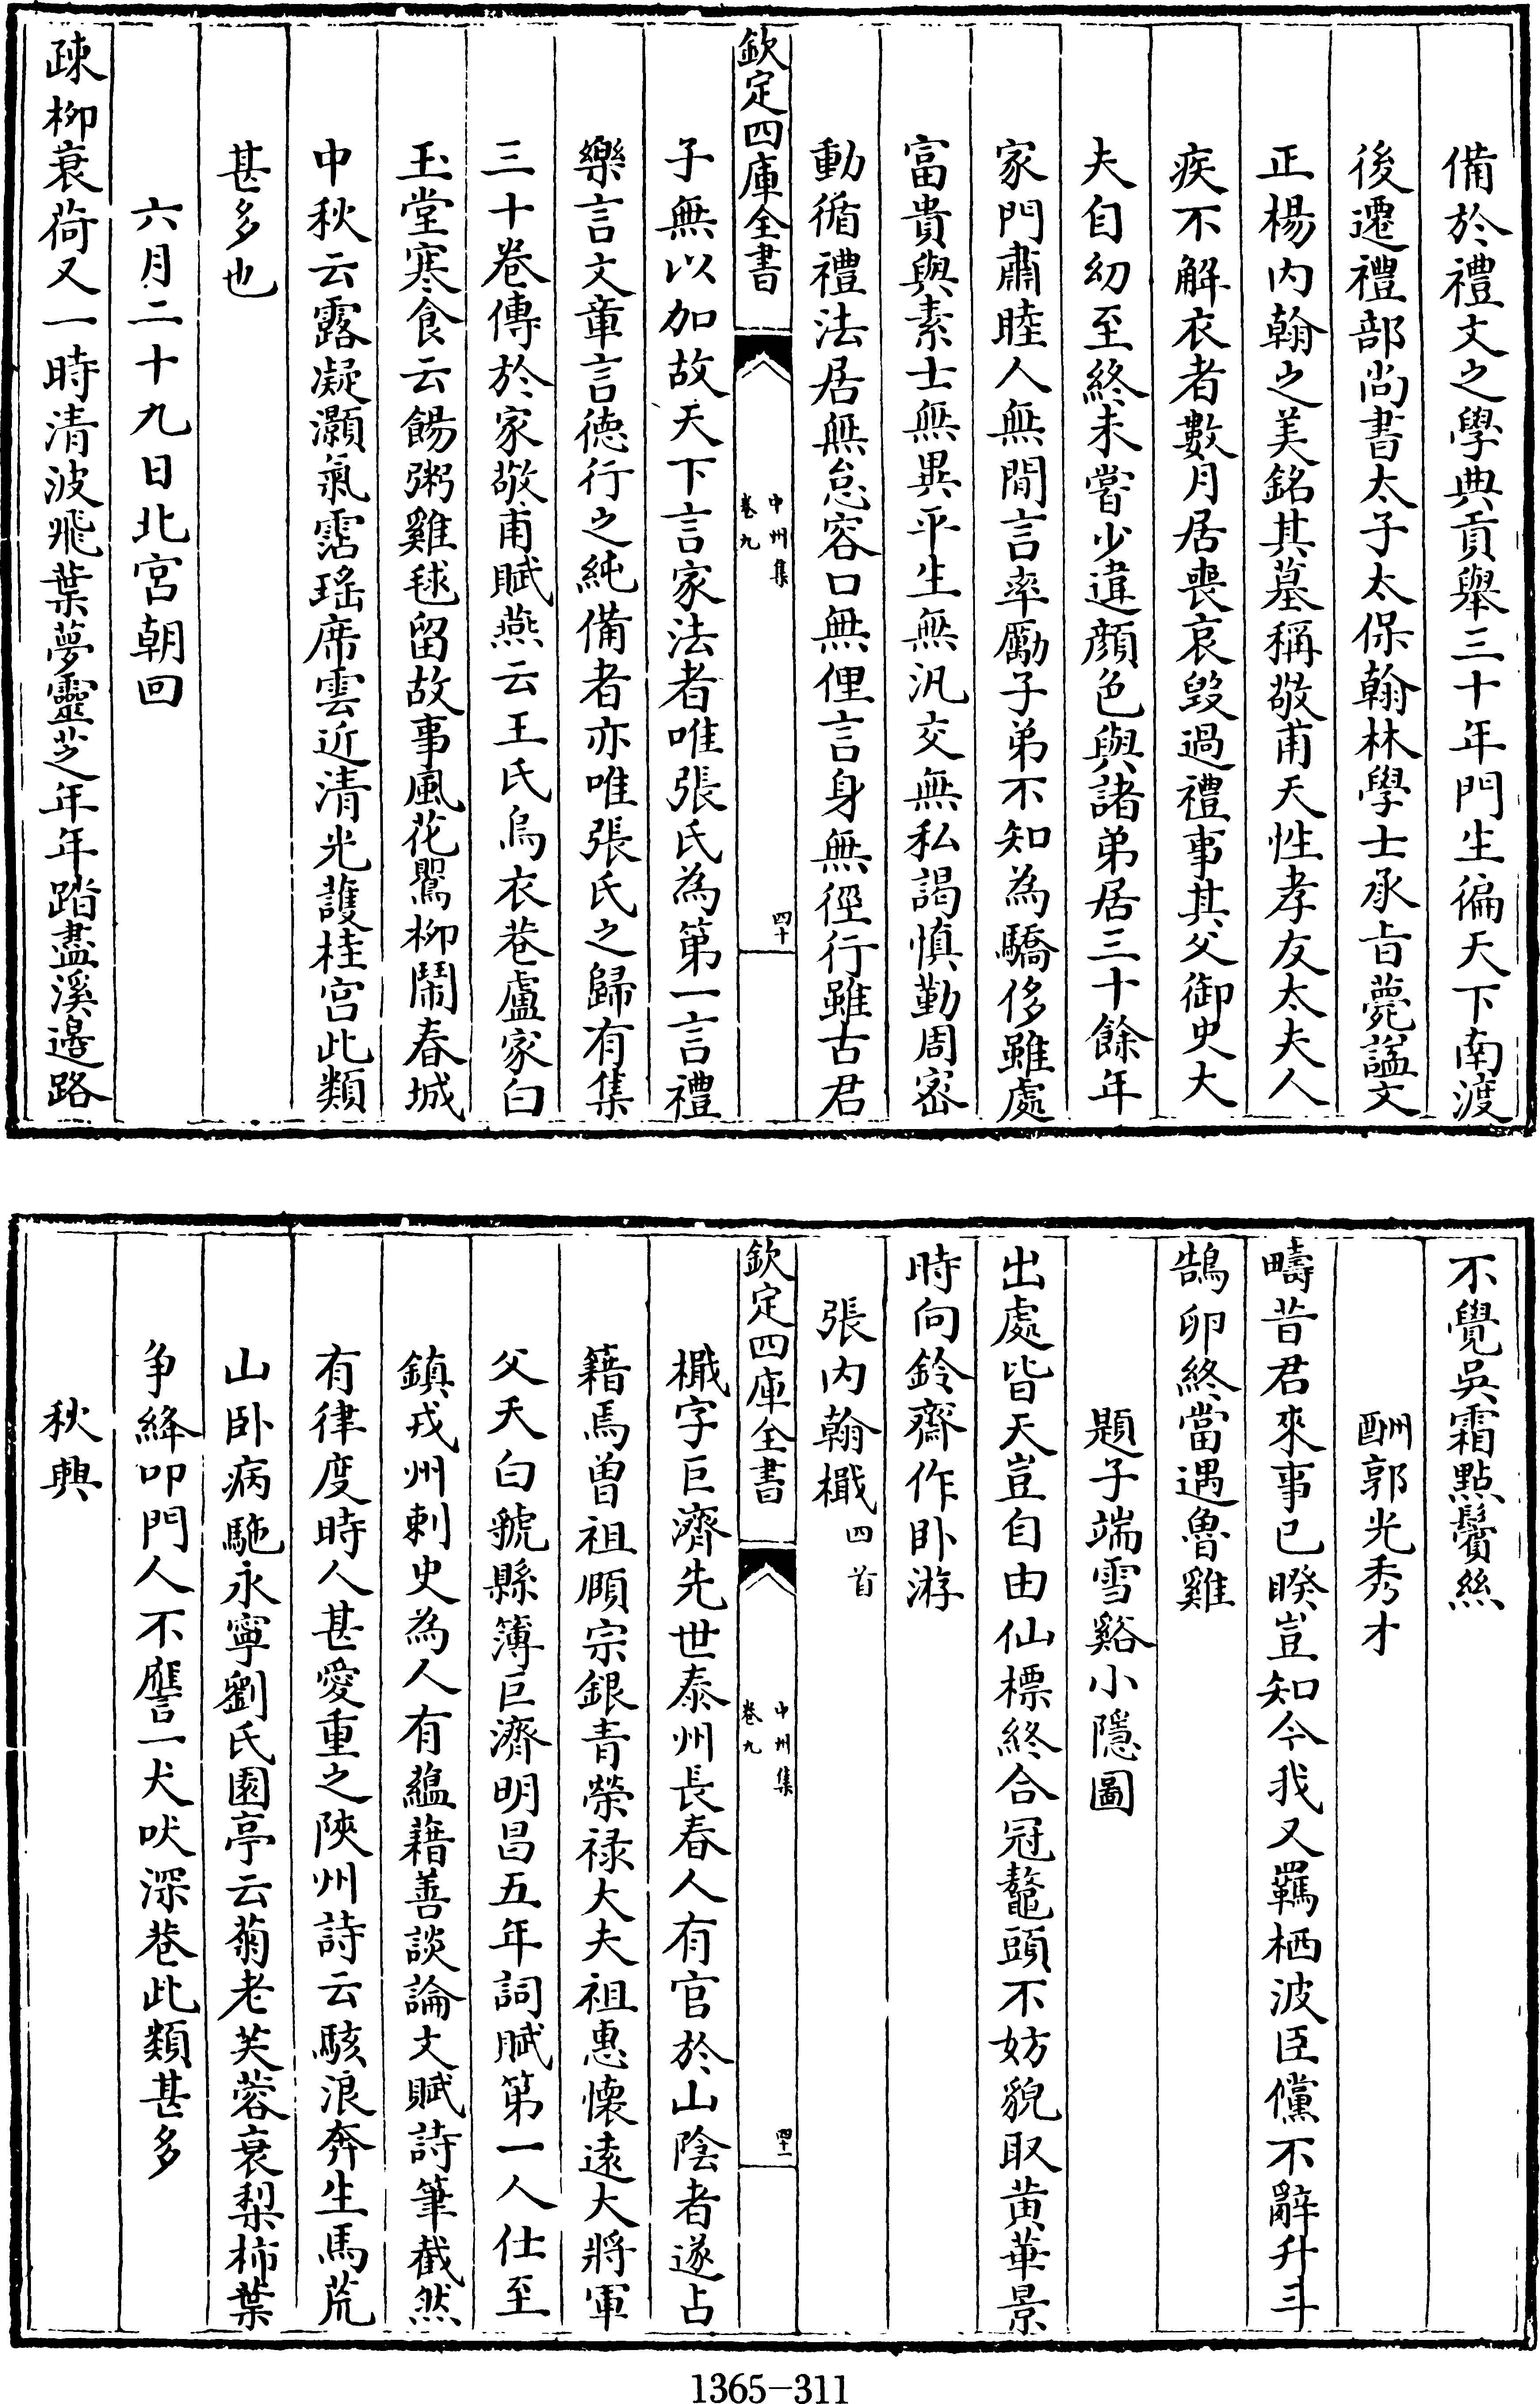 備於禮文之學典貢舉三十年門生徧天下南渡
後遷禮部尚書太子太保翰林學士承旨薨謚文
正楊内翰之美銘其墓稱敬甫天性孝友太夫人
疾不解衣者數月居喪哀毁過禮事其父御史大
夫自幼至終未嘗少違顔色與諸弟居三十餘年
家門肅睦人無間言率勵子弟不知為驕侈雖處
富貴與素士無異平生無汎交無私謁慎勤周宻
動循禮法居無怠容口無俚言身無徑行雖古君
欽定四庫全書
中州集
卷九
四十
子無以加故天下言家法者唯張氏為第一言禮
樂言文章言徳行之純備者亦唯張氏之歸有集
三十卷傳於家敬甫賦燕云王氏烏衣巷盧家白
玉堂寒食云餳粥雞毬留故事風花鸎柳鬧春城
中秋云露凝灝氣霑瑤席雲近清光護桂宫此類
甚多也
六月二十九日北宫朝回
疎柳衰荷又一時清波飛葉夢靈芝年年踏盡溪邉路
不覺吳霜點鬢絲
酬郭光秀才
疇昔君來事已睽豈知今我又羈栖波臣儻不辭升斗
鵠卵終當遇魯雞
題子端雪谿小隱圖
出處皆天豈自由仙標終合冠鼇頭不妨貌取黄華景
時向鈴齋作卧游
張内翰檝四首
欽定四庫全書
中州集
卷九
四十一
檝字巨濟先世泰州長春人有官於山陰者遂占
籍焉曽祖願宗銀青榮禄大夫祖惠懐逺大將軍
父天白虢縣簿巨濟明昌五年詞賦第一人仕至
鎮戎州刺史為人有藴藉善談論文賦詩筆截然
有律度時人甚愛重之陜州詩云駭浪奔生馬荒
山卧病駞永寧劉氏園亭云菊老芙蓉衰梨柿葉
争絳叩門人不譍一犬吠深巷此類甚多
秋興
1365-311